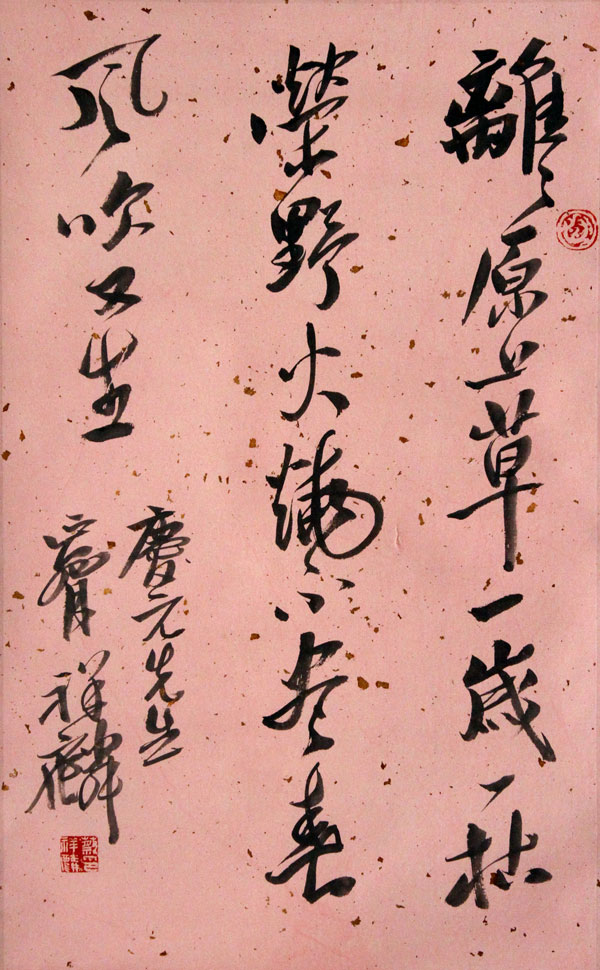 離〻原上草一歲一枯
榮野火燒不盡春
風吹又生
慶元先生
祥麟